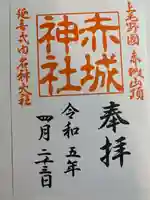 上毛野國 赤城山頂
奉拝
赤城
神社
令和五年
四月二十三日
延喜式内名神大社